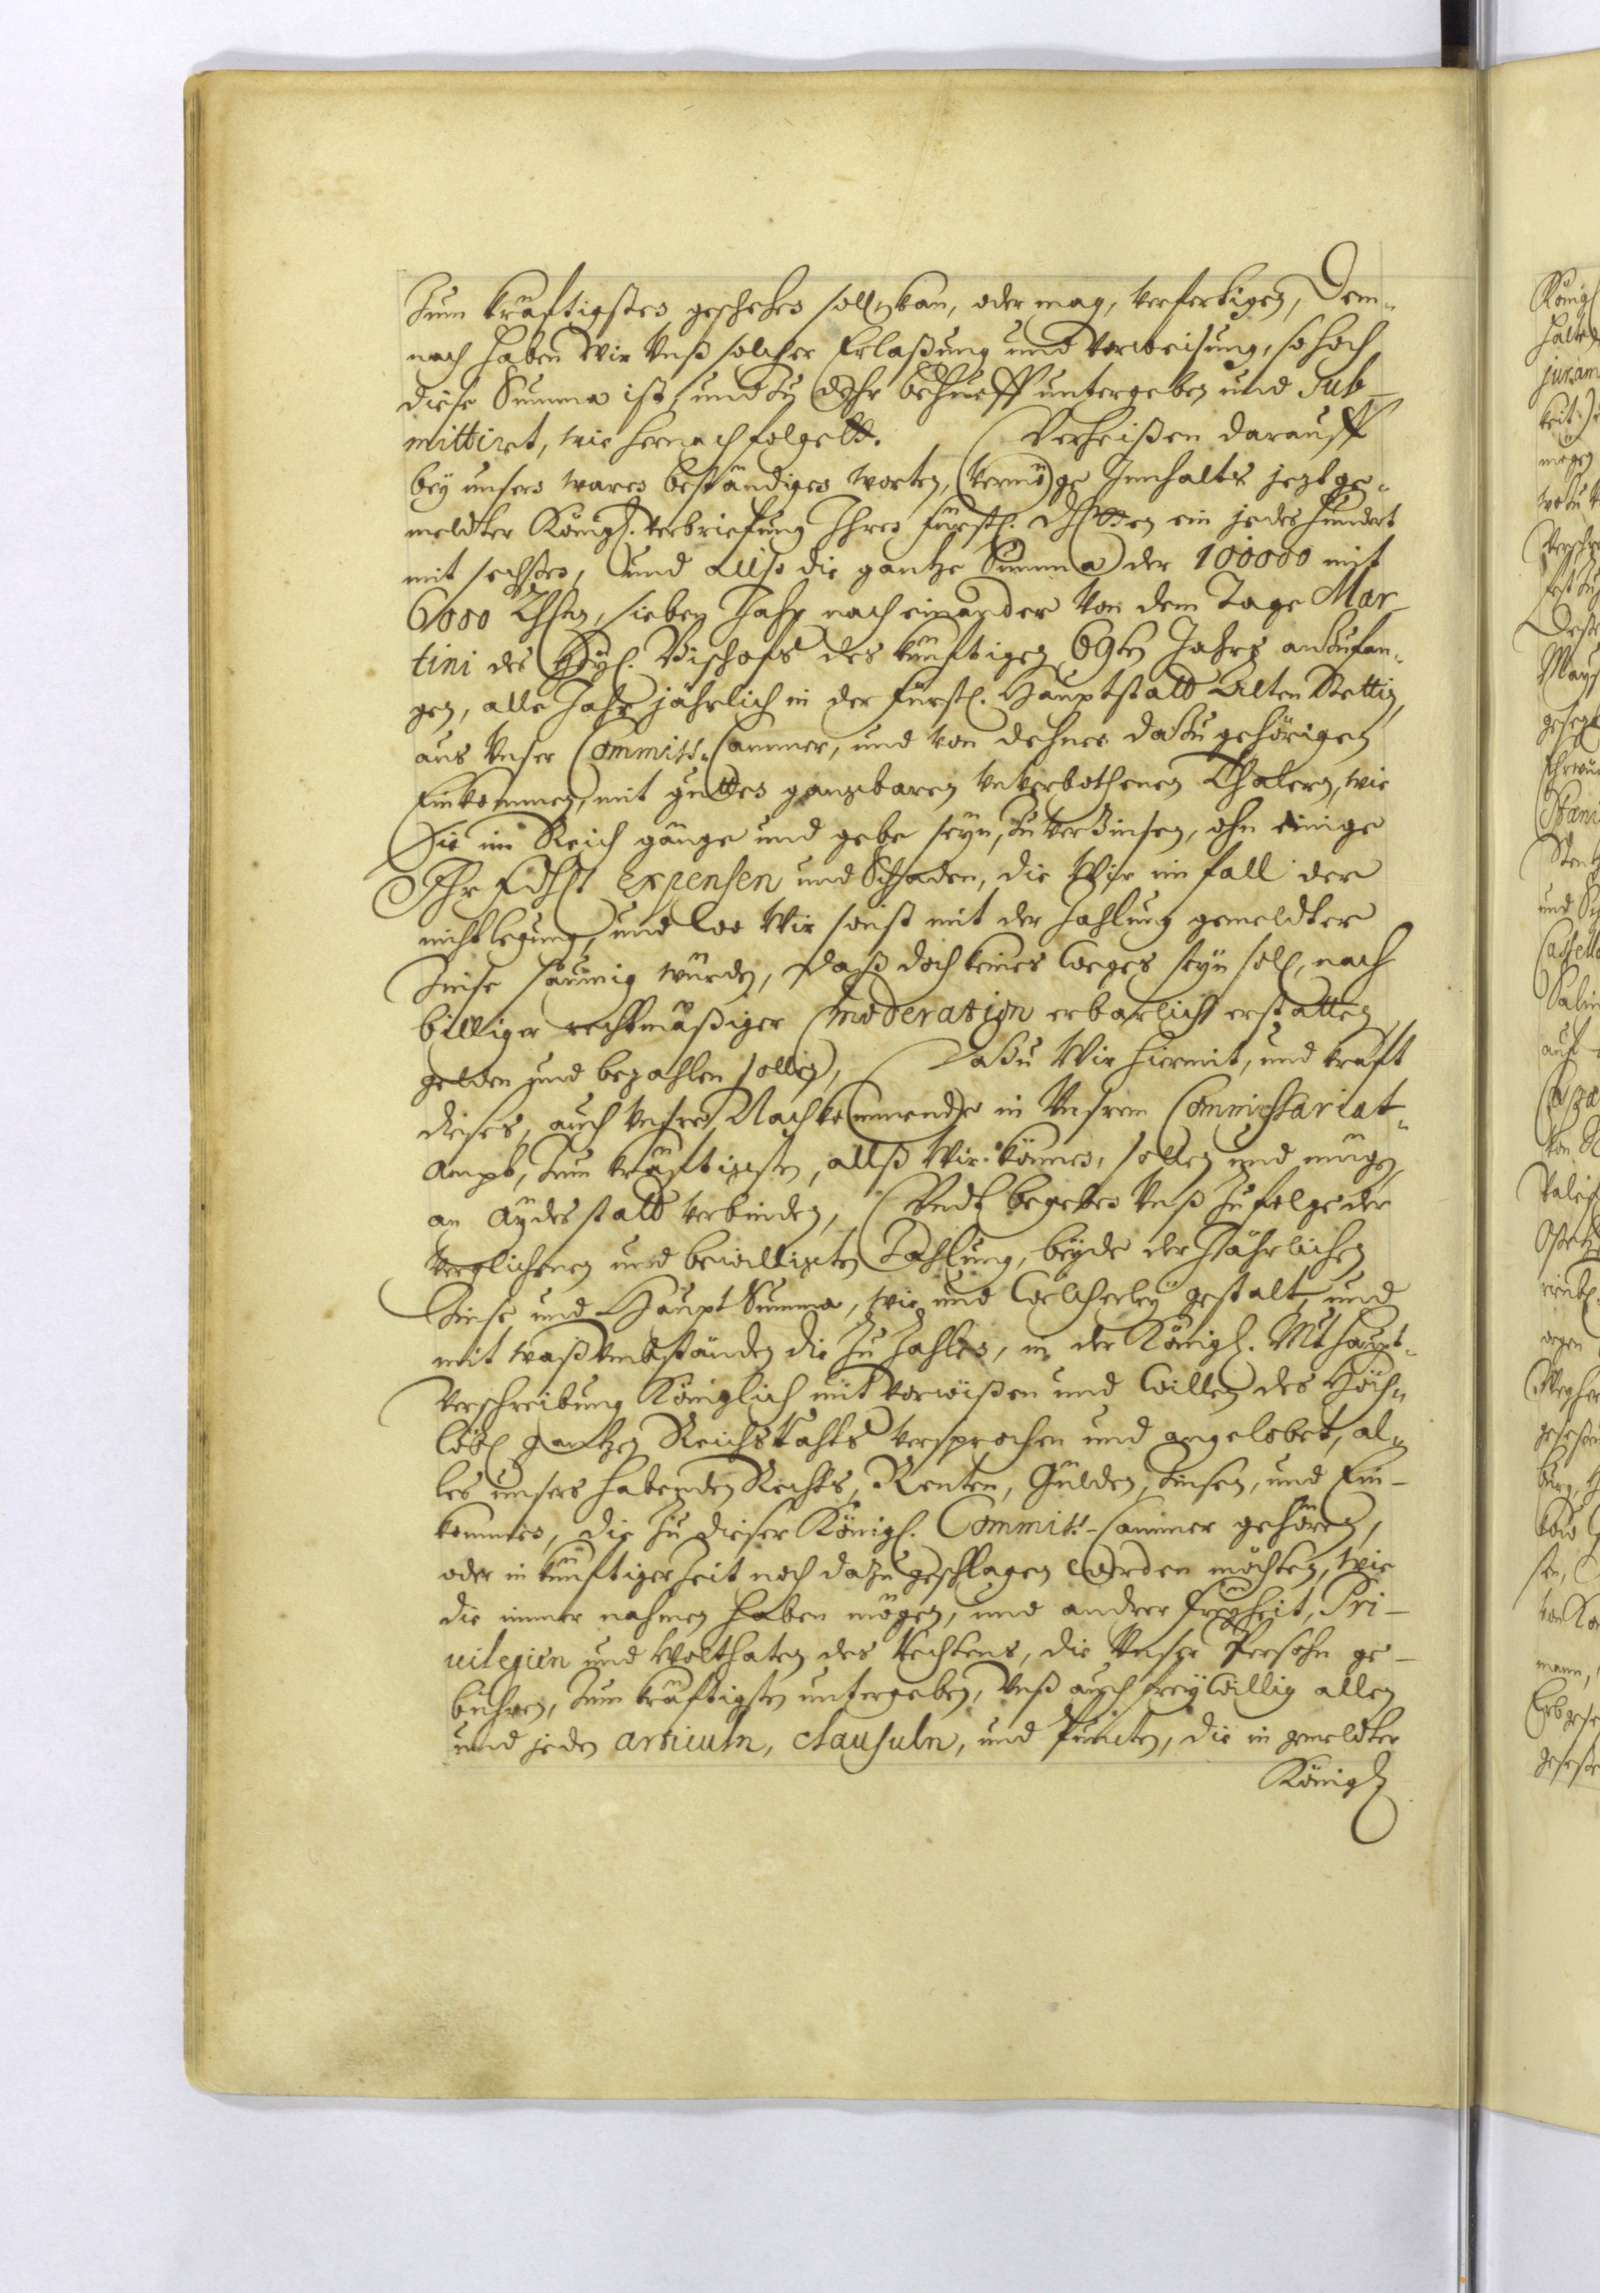 Zum kräftigsten geschehen soll, kan, oder mag, verfertigen, Dem-
nach haben Wir Unß solcher Erlaßung und Verweisung, so hoch
diese Summa ist, und zu dehr behueff untergeben und Sub-
mittiret, wie hernach folgett. Verheißen darauff
bey unsern waren beständigen worten, vermöge Innhalts jeztge-
meldter Königl. verbriefung Ihren fürstl. ein jedes hundert
mit sechsen, und allso die gantze Summa der 100000 mit
6000 Thlrn, sieben Jahr nach einander von dem Tage Mar-
tini des Heyl. Bischofs des künftigen 69ten Jahrs anzufan-
gen, alle Jahr jährlich in der fürstl. Hauptstatt Alten Stettin,
aus Unser Commiss. Cammer, und von dehnen dazu gehörigen
Einkommen, mit gutten ganzbaren unverbothenen Thalern, wie
Sie im Reich gänge und gebe seyn, zu verzinsen, ohn einige
Ihr Expensen und Schaden, die Wir im fall der
nichtlegung, und wo Wir sonst mit der Zahlung gemeldter
Zinse säumig würden, daß doch keines weges seyn soll, nach
billiger rechtmäßiger Moderation erbarlich erstatten
gelden und bezahlen sollen, Dazu Wir hiermit, und kraft
dieses, auch Unsere Nachkommende in Unsrem Commissariat-
Ampt, zum kräftigsten, allß Wir können, sollen und mügen,
an Aydes statt verbinden, Undt begeben Unß zufolge der
verglichenen und bewilligten Zahlung, beyde der Jährlichen
Zinse und Haupt Summa, wie und welcherley gestalt, und
mit waß umbständen die zu zahlen, in der Königl. Mtt Haupt-
verschreibung Königlich mit vorwißen und willen des Hoch-
löbl. gantzen Reichs Rahts versprochen und angelobet, al-
les unsers habenden Rechts, Renten, Gülden, Zinsen, und Ein-
kommen, die zu dieser Königl. Commiss-Cammer gehören,
oder in künftiger Zeit noch dazu geschlagen werden möchten, wie
die immer nahmen haben mögen, und andrer freyheit, Pri-
uilegien und Wolthaten des Rechtens, die Unser Persohn ge-
bühren, zum kräftigsten untergeben, Unß auch freywillig allen
und jeden articuln, clausuln, und Puncten, die in gemeldter
Königl.